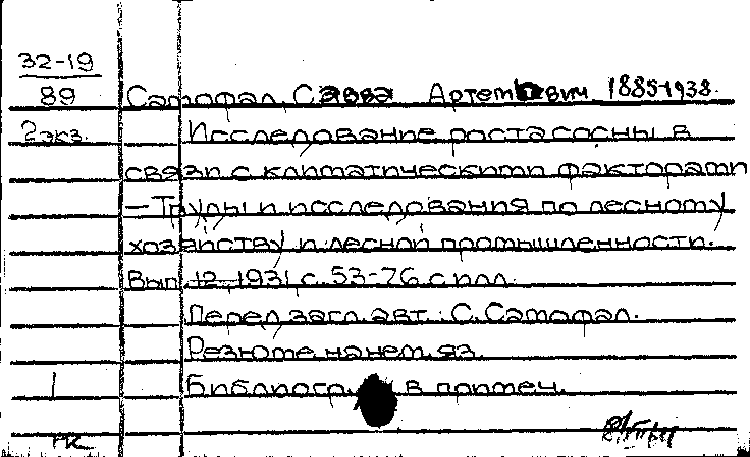 32-19
89
Самофал, Савва Артемьевич 1885-1938.
2экз.
Исследование роста сосны в
связи с климатическими факторами
— Труды и исследования по лесному
хозяйству и лесной промышленности.
Вып. 12, 1931 с. 53-76 с илл.
Перед загл. авт.: С. Самофал.
Резюме на нем. яз.
Библиогр. в примеч.